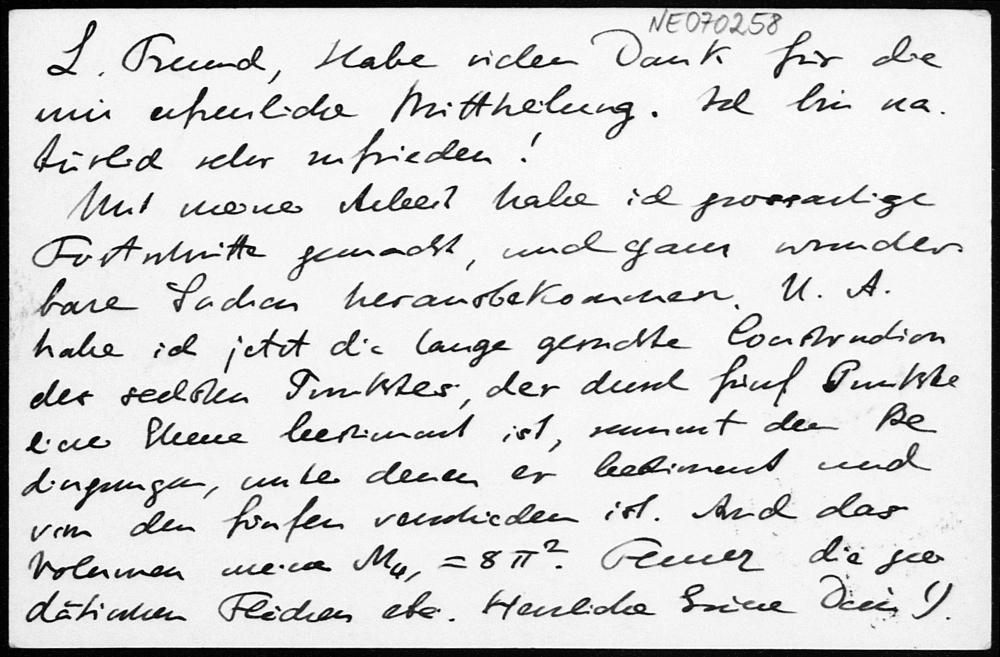 NE070258
L. Freund, Habe vielen Dank für die
mir erfreuliche Mittheilung. Ich bin na-
türlich sehr zufrieden!
Mit meiner Arbeit habe ich grossartige
Fortschritte gemacht, und ganz wunder-
bare Sachen herausbekommen. U. A.
habe ich jetzt die lange gesuchte Construction
des sechsten Punktes, der durch fünf Punkte
einer Ebene bestimmt ist, sammt den Be
dingungen, unter denen er bestimmt und
von den fünfen verschieden ist. Auch das
Volumen meiner M₄, = 8π². Ferner die geo
dätischen Flächen etc. Herzliche Grüsse Dein